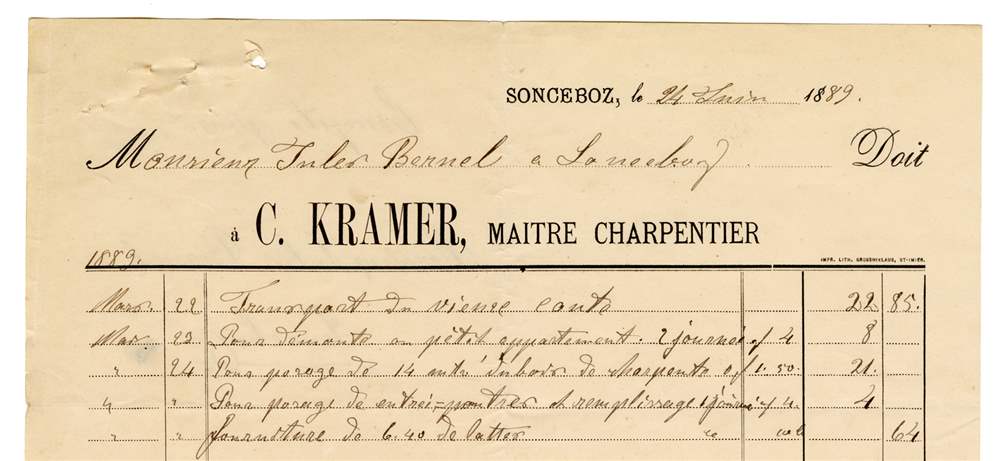 SONCEBOZ, le 24 Juin 1889.
Monsieur Jules Bernel a Sonceboz Doit
à C. KRAMER, MAITRE CHARPENTIER
1889.
IMPR. LITH. GROSSNIKLAUS, ST-IMIER.
Mars. 22 Transport du vieux conto 22 85.
Mar. 23 Pour démonté un pétit appartement. 2 journé af 4 8
" 24 Pour posage de 14 mtr de bois de charpente af 1.50. 21.
" " Pour posage de entrei=poutres et remplissage 1 journé af 4. 4
" " fourniture de 6.40 de latter 64